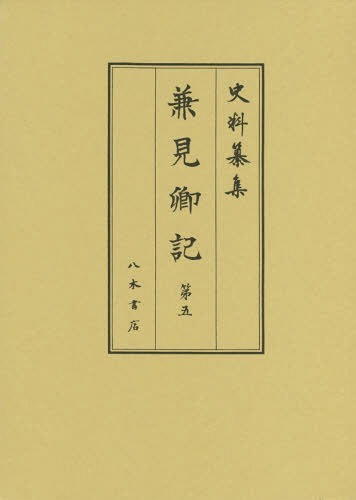 史料纂集
兼見卿記
第五
八木書店